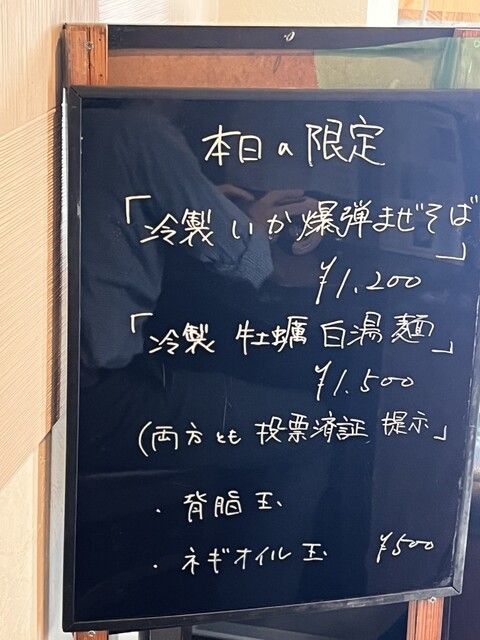 本日の限定
「冷製 いか爆弾まぜそば」
¥1.200
「冷製 牡蠣 白湯麺」
¥1.500
(両方とも 投票済証 提示」
・背脂玉
・ネギオイル玉 ¥500